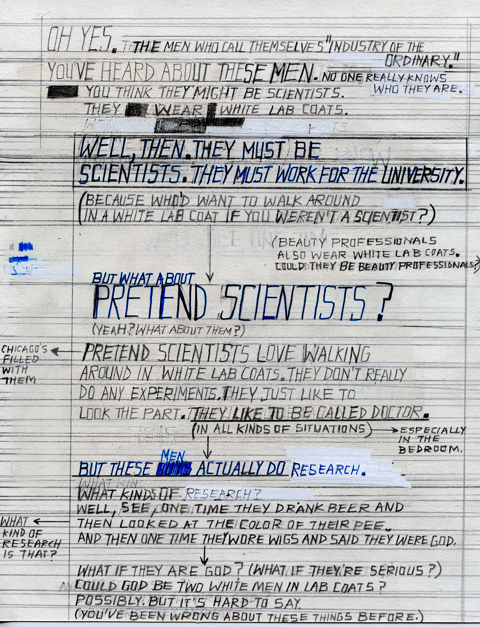 OH YES. THE MEN WHO CALL THEMSELVES "INDUSTRY OF THE
ORDINARY."
YOU'VE HEARD ABOUT THESE MEN. NO ONE REALLY KNOWS
WHO THEY ARE.
YOU THINK THEY MIGHT BE SCIENTISTS.
THEY WEAR WHITE LAB COATS.
WELL, THEN. THEY MUST BE
SCIENTISTS. THEY MUST WORK FOR THE UNIVERSITY.
(BECAUSE WHO'D WANT TO WALK AROUND
IN A WHITE LAB COAT IF YOU WEREN'T A SCIENTIST?)
(BEAUTY PROFESSIONALS
ALSO WEAR WHITE LAB COATS.
COULD THEY BE BEAUTY PROFESSIONALS?)
BUT WHAT ABOUT
PRETEND SCIENTISTS?
(YEAH? WHAT ABOUT THEM?)
CHICAGO'S
FILLED
WITH
THEM
PRETEND SCIENTISTS LOVE WALKING
AROUND IN WHITE LAB COATS. THEY DON'T REALLY
DO ANY EXPERIMENTS. THEY JUST LIKE TO
LOOK THE PART. THEY LIKE TO BE CALLED DOCTOR.
(IN ALL KINDS OF SITUATIONS)
ESPECIALLY
IN THE
BEDROOM.
MEN
BUT THESE ACTUALLY DO RESEARCH.
WHAT KINDS OF RESEARCH?
WELL, SEE, ONE TIME THEY DRANK BEER AND
THEN LOOKED AT THE COLOR OF THEIR PEE.
AND THEN ONE TIME THEY WORE WIGS AND SAID THEY WERE GOD.
WHAT
KIND OF
RESEARCH
IS THAT?
WHAT IF THEY ARE GOD? (WHAT IF THEY'RE SERIOUS?)
COULD GOD BE TWO WHITE MEN IN LAB COATS?
POSSIBLY. BUT IT'S HARD TO SAY.
(YOU'VE BEEN WRONG ABOUT THESE THINGS BEFORE.)